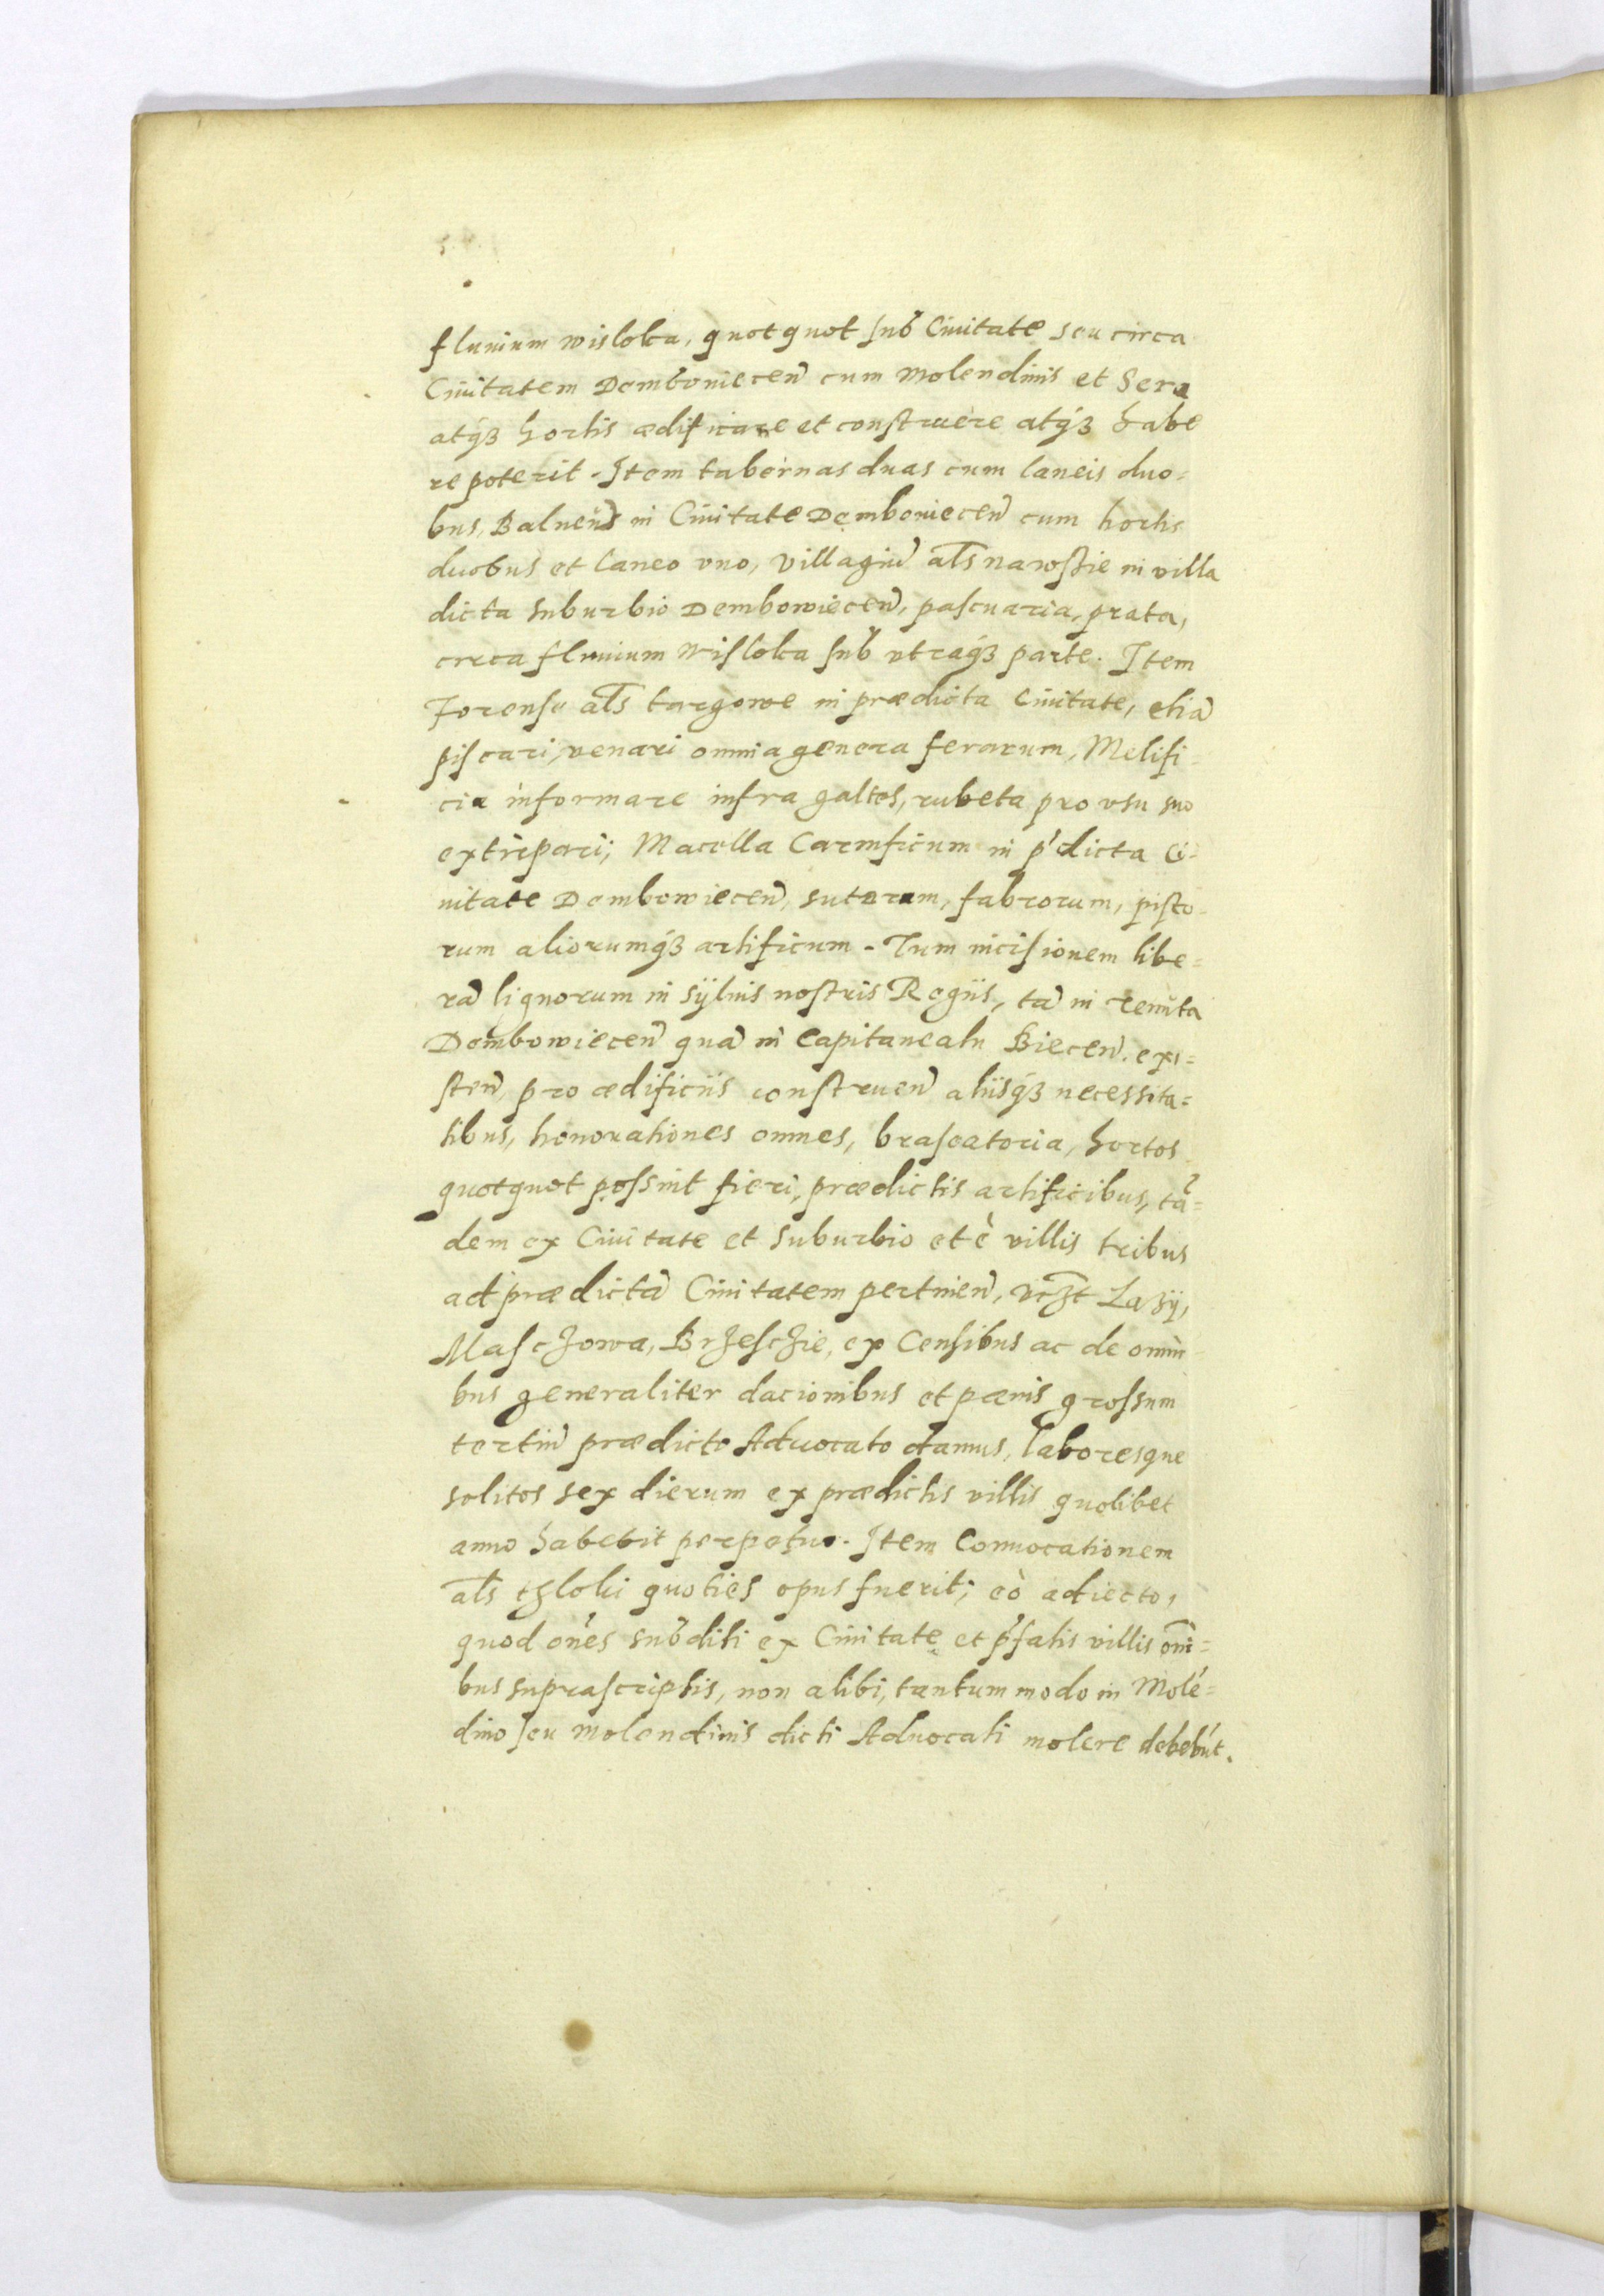 fluuium wisloka, quotquot sub Ciuitate seu circa
Ciuitatem Dembouiecen̄ cum Molendinis et Serra
atq́ꝫ hortis ædificare et construere atq́ꝫ habe
re poterit. Item tabernas duas cum laneis duo=
bus, Balneū in Ciuitate Dembouiecen̄ cum hortis
duobus et laneo vno, villagiū al̄s nawsie in villa
dicta Suburbio Dembowiecen̄, pascuaria, prata,
circa fluuium Wisloka sub vtraq́ꝫ parte. Item
Forense al̄s targowe in prædicta Ciuitate, etiā
piscari, venari omnia genera ferarum, Melifi-
cia informare infra galtos, rubeta pro vsu suo
extirpari; Macella Carnificum in p̄dicta Ci-
uitate Dembowiecen̄, sutorum, fabrorum, pisto-
rum aliorumq́ꝫ artificum. Tum incisionem libe=
rā lignorum in sÿluis nostris Regiis, tā in tenuta
Dombowiecen̄ quā in Capitaneatu Biecen̄. exi=
sten̄, pro ædificiis construen̄ aliisq́ꝫ necessita=
tibus, honorationes omnes, braseatoria, hortos
quotquot possint fieri, prædictis artificibus, tā=
dem ex Ciuitate et Suburbio et è villis tribus
ad prædictā Ciuitatem pertinen̄, vcꝫt Lazÿ,
Maschowa, Brzesczie, ex Censibus ac de omni-
bus generaliter dacionibus et pænis grossum
tertiū prædicto Aduocato damus, laboresque
solitos sex dierum ex prædictis villis quolibet
anno habebit perpetuo. Item Conuocationem
al̄s thloki quoties opus fuerit; eò adiecto,
quod on̄es subditi ex Ciuitate et p̄fatis villis om̄i=
bus suprascriptis, non alibi, tantummodo in Molé=
dino seu Molendinis dicti Aduocati molere debebūt.